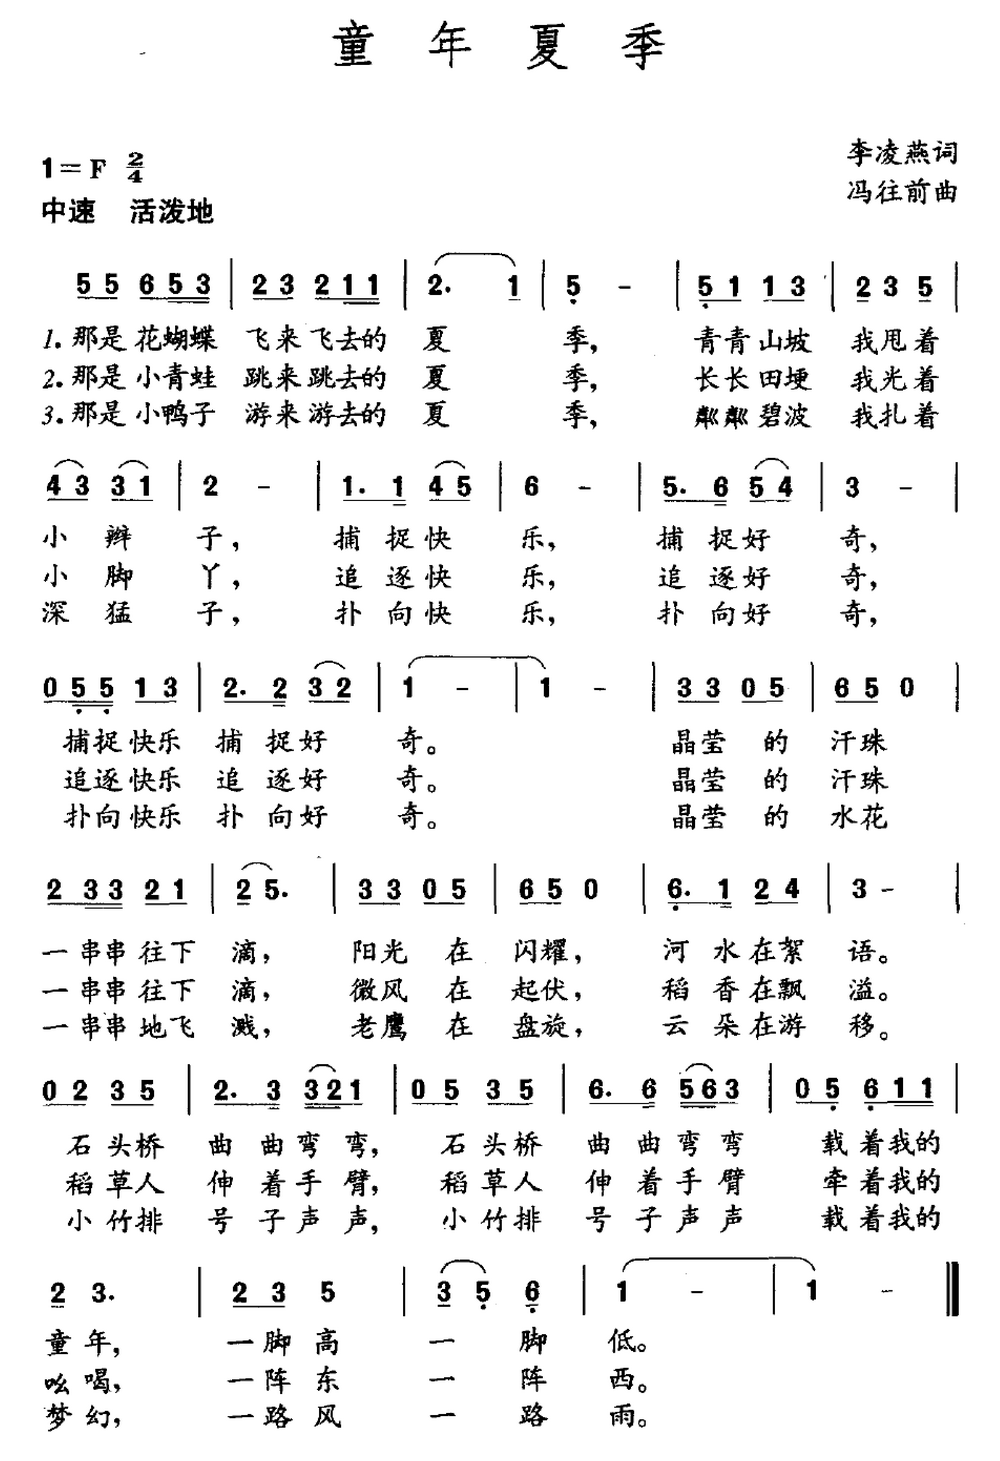 童年夏季
1=F 2/4
李凌燕词
中速 活泼地
冯往前曲
55 653 | 23 211 | 2. 1 | 5 - | 51 13 | 23 5 |
1.那是花蝴蝶 飞来飞去的 夏 季, 青青山坡 我甩着
2.那是小青蛙 跳来跳去的 夏 季, 长长田埂 我光着
3.那是小鸭子 游来游去的 夏 季, 粼粼碧波 我扎着
43 31 | 2 - | 1. 1 45 | 6 - | 5. 6 54 | 3 - |
小 辫 子, 捕 捉快 乐, 捕 捉好 奇,
小 脚 丫, 追 逐快 乐, 追 逐好 奇,
深 猛 子, 扑 向快 乐, 扑 向好 奇,
055 13 | 2. 2 32 | 1 - | 1 - | 33 05 | 65 0 |
捕捉快乐 捕 捉好 奇。 晶莹 的 汗珠
追逐快乐 追 逐好 奇。 晶莹 的 汗珠
扑向快乐 扑 向好 奇。 晶莹 的 水花
2 33 21 | 2 5. | 33 05 | 65 0 | 6. 1 24 | 3 - |
一串串往下 滴, 阳光 在 闪耀, 河 水在絮 语。
一串串往下 滴, 微风 在 起伏, 稻 香在飘 溢。
一串串地飞 溅, 老鹰 在 盘旋, 云 朵在游 移。
02 35 | 2. 3 321 | 05 35 | 6. 6 563 | 05 611 |
石头桥 曲 曲弯 弯, 石头桥 曲 曲弯 弯 载着我的
稻草人 伸 着手 臂, 稻草人 伸 着手 臂 牵着我的
小竹排 号 子声 声, 小竹排 号 子声 声 载着我的
2 3. | 23 5 | 35 6 | 1 - | 1 - ‖
童年, 一脚高 一 脚 低。
吆喝, 一阵东 一 阵 西。
梦幻, 一路风 一 路 雨。